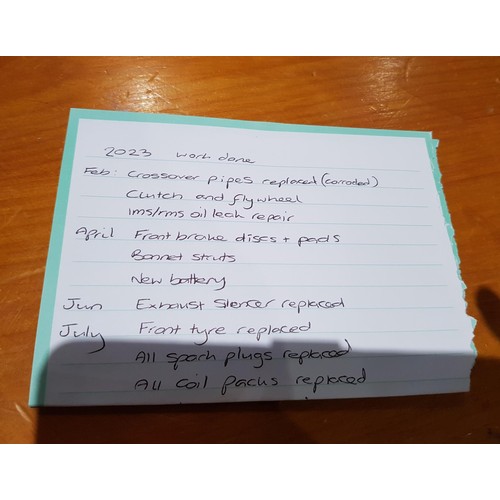 2023 work done
Feb: Crossover pipes replaced (corroded)
Clutch and flywheel
Ims/rms oil leak repair
April Front brake discs + pads
Bonnet struts
New battery
Jun Exhaust silencer replaced
July Front tyre replaced
All spark plugs replaced
All coil packs replaced